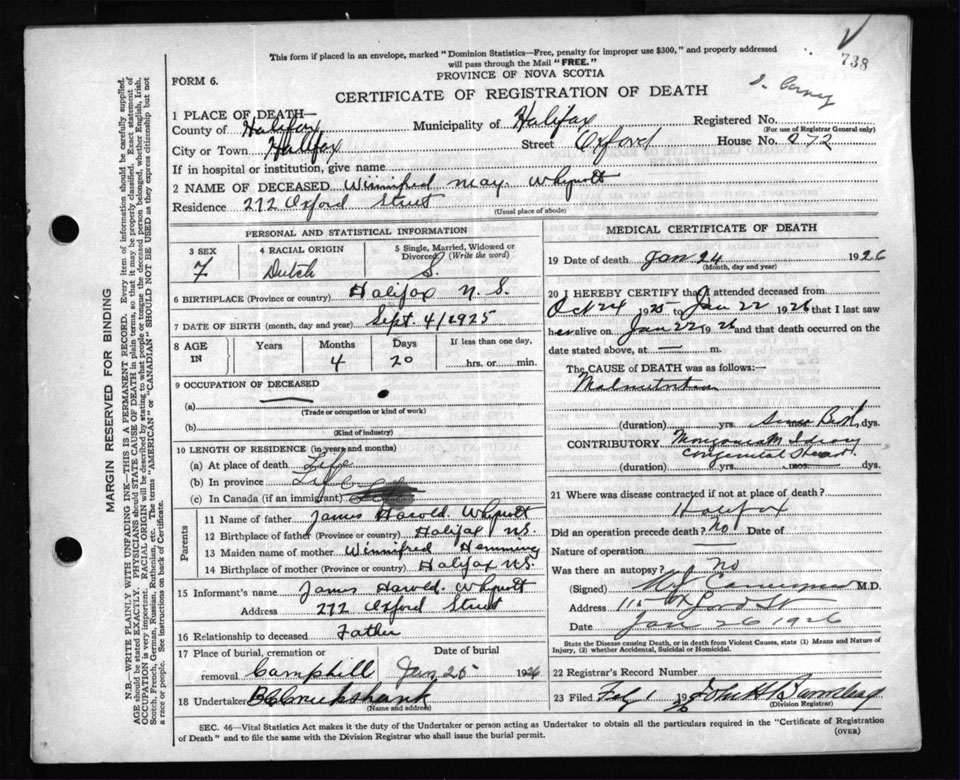 This form if placed in an envelope, marked "Dominion Statistics—Free, penalty for improper use $300," and properly addressed
will pass through the Mail "FREE."
738
FORM 6.
PROVINCE OF NOVA SCOTIA
CERTIFICATE OF REGISTRATION OF DEATH
1 PLACE OF DEATH—
County of Halifax Municipality of Halifax Registered No.
(For use of Registrar General only)
City or Town Halifax Street Oxford House No. 272
If in hospital or institution, give name
2 NAME OF DECEASED Winnifred May. Whynott
Residence 272 Oxford Street
(Usual place of abode)
MARGIN RESERVED FOR BINDING
N.B.—WRITE PLAINLY WITH UNFADING INK—THIS IS A PERMANENT RECORD. Every item of information should be carefully supplied.
AGE should be stated EXACTLY. PHYSICIANS should STATE CAUSE OF DEATH in plain terms, so that it may be properly classified. Exact statement of
OCCUPATION is very important. RACIAL ORIGIN will be described by stating to what people or tongue the deceased person belonged, whether English, Irish,
Scotch, French, German, Russian, Ruthenian, etc. The terms "AMERICAN" or "CANADIAN" SHOULD NOT BE USED as they express citizenship but not
a race or people. See instructions on back of Certificate.
PERSONAL AND STATISTICAL INFORMATION
3 SEX
F
4 RACIAL ORIGIN
Dutch
5 Single, Married, Widowed or
Divorced (Write the word)
S.
6 BIRTHPLACE (Province or country) Halifax N.S.
7 DATE OF BIRTH (month, day and year) Sept. 4/1925
8 AGE IN
Years
Months
4
Days
20
If less than one day,
hrs. or min.
9 OCCUPATION OF DECEASED
(a)
(Trade or occupation or kind of work)
(b)
(Kind of industry)
10 LENGTH OF RESIDENCE (in years and months)
(a) At place of death Life
(b) In province Life
(c) In Canada (if an immigrant)
Parents
11 Name of father James Harold. Whynott
12 Birthplace of father (Province or country) Halifax N.S.
13 Maiden name of mother Winnifred Hemming
14 Birthplace of mother (Province or country) Halifax N.S.
15 Informant's name James Harold Whynott
Address 272 Oxford Street
16 Relationship to deceased Father
17 Place of burial, cremation or
removal Camphill
Date of burial
Jan 25 1926
18 Undertaker Cruikshank
(Name and address)
MEDICAL CERTIFICATE OF DEATH
19 Date of death Jan 24 1926
(Month, day and year)
20 I HEREBY CERTIFY that I attended deceased from
Oct 24 1925 to Jan 22 1926 that I last saw
her alive on Jan 22 1926 and that death occurred on the
date stated above, at — m.
The CAUSE OF DEATH was as follows:—
Malnutrition
(duration) yrs. Since Birth dys.
CONTRIBUTORY Mongolian Idiocy
Congenital Heart.
(duration) yrs. mos. dys.
21 Where was disease contracted if not at place of death?
Halifax
Did an operation precede death? No Date of
Nature of operation —
Was there an autopsy? No
(Signed) M.D.
Address Oxford St
Date Jan 26 1926
State the Disease causing Death, or in death from Violent Causes, state (1) Means and Nature of
Injury, (2) whether Accidental, Suicidal or Homicidal.
22 Registrar's Record Number
23 Filed Feb 1 1926 John H. Barnstead
(Division Registrar)
SEC. 46—Vital Statistics Act makes it the duty of the Undertaker or person acting as Undertaker to obtain all the particulars required in the "Certificate of Registration
of Death" and to file the same with the Division Registrar who shall issue the burial permit.
(OVER)